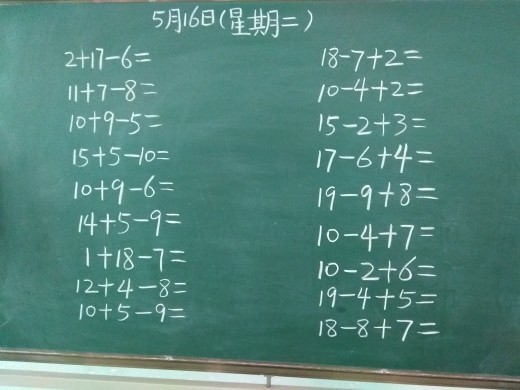 5月16日(星期二)
2+17-6=
11+7-8=
10+9-5=
15+5-10=
10+9-6=
14+5-9=
1+18-7=
12+4-8=
10+5-9=
18-7+2=
10-4+2=
15-2+3=
17-6+4=
19-9+8=
10-4+7=
10-2+6=
19-4+5=
18-8+7=